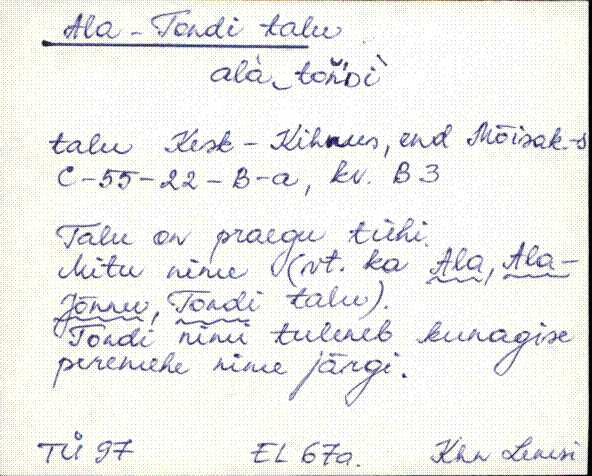 Ala-Tondi talu
alà_toǹ'ɒì
talu Kesk-Kihnus, end Mõisak-s
C-55-22-B-a, kv. B3
Talu on praegu tühi.
Mitu nime (vt. ka Ala, Ala-
Jõnnu, Tondi talu).
Tondi nimi tuleneb kunagise
peremehe nime järgi.
TÜ 97 EL 67a. Khn Lemsi